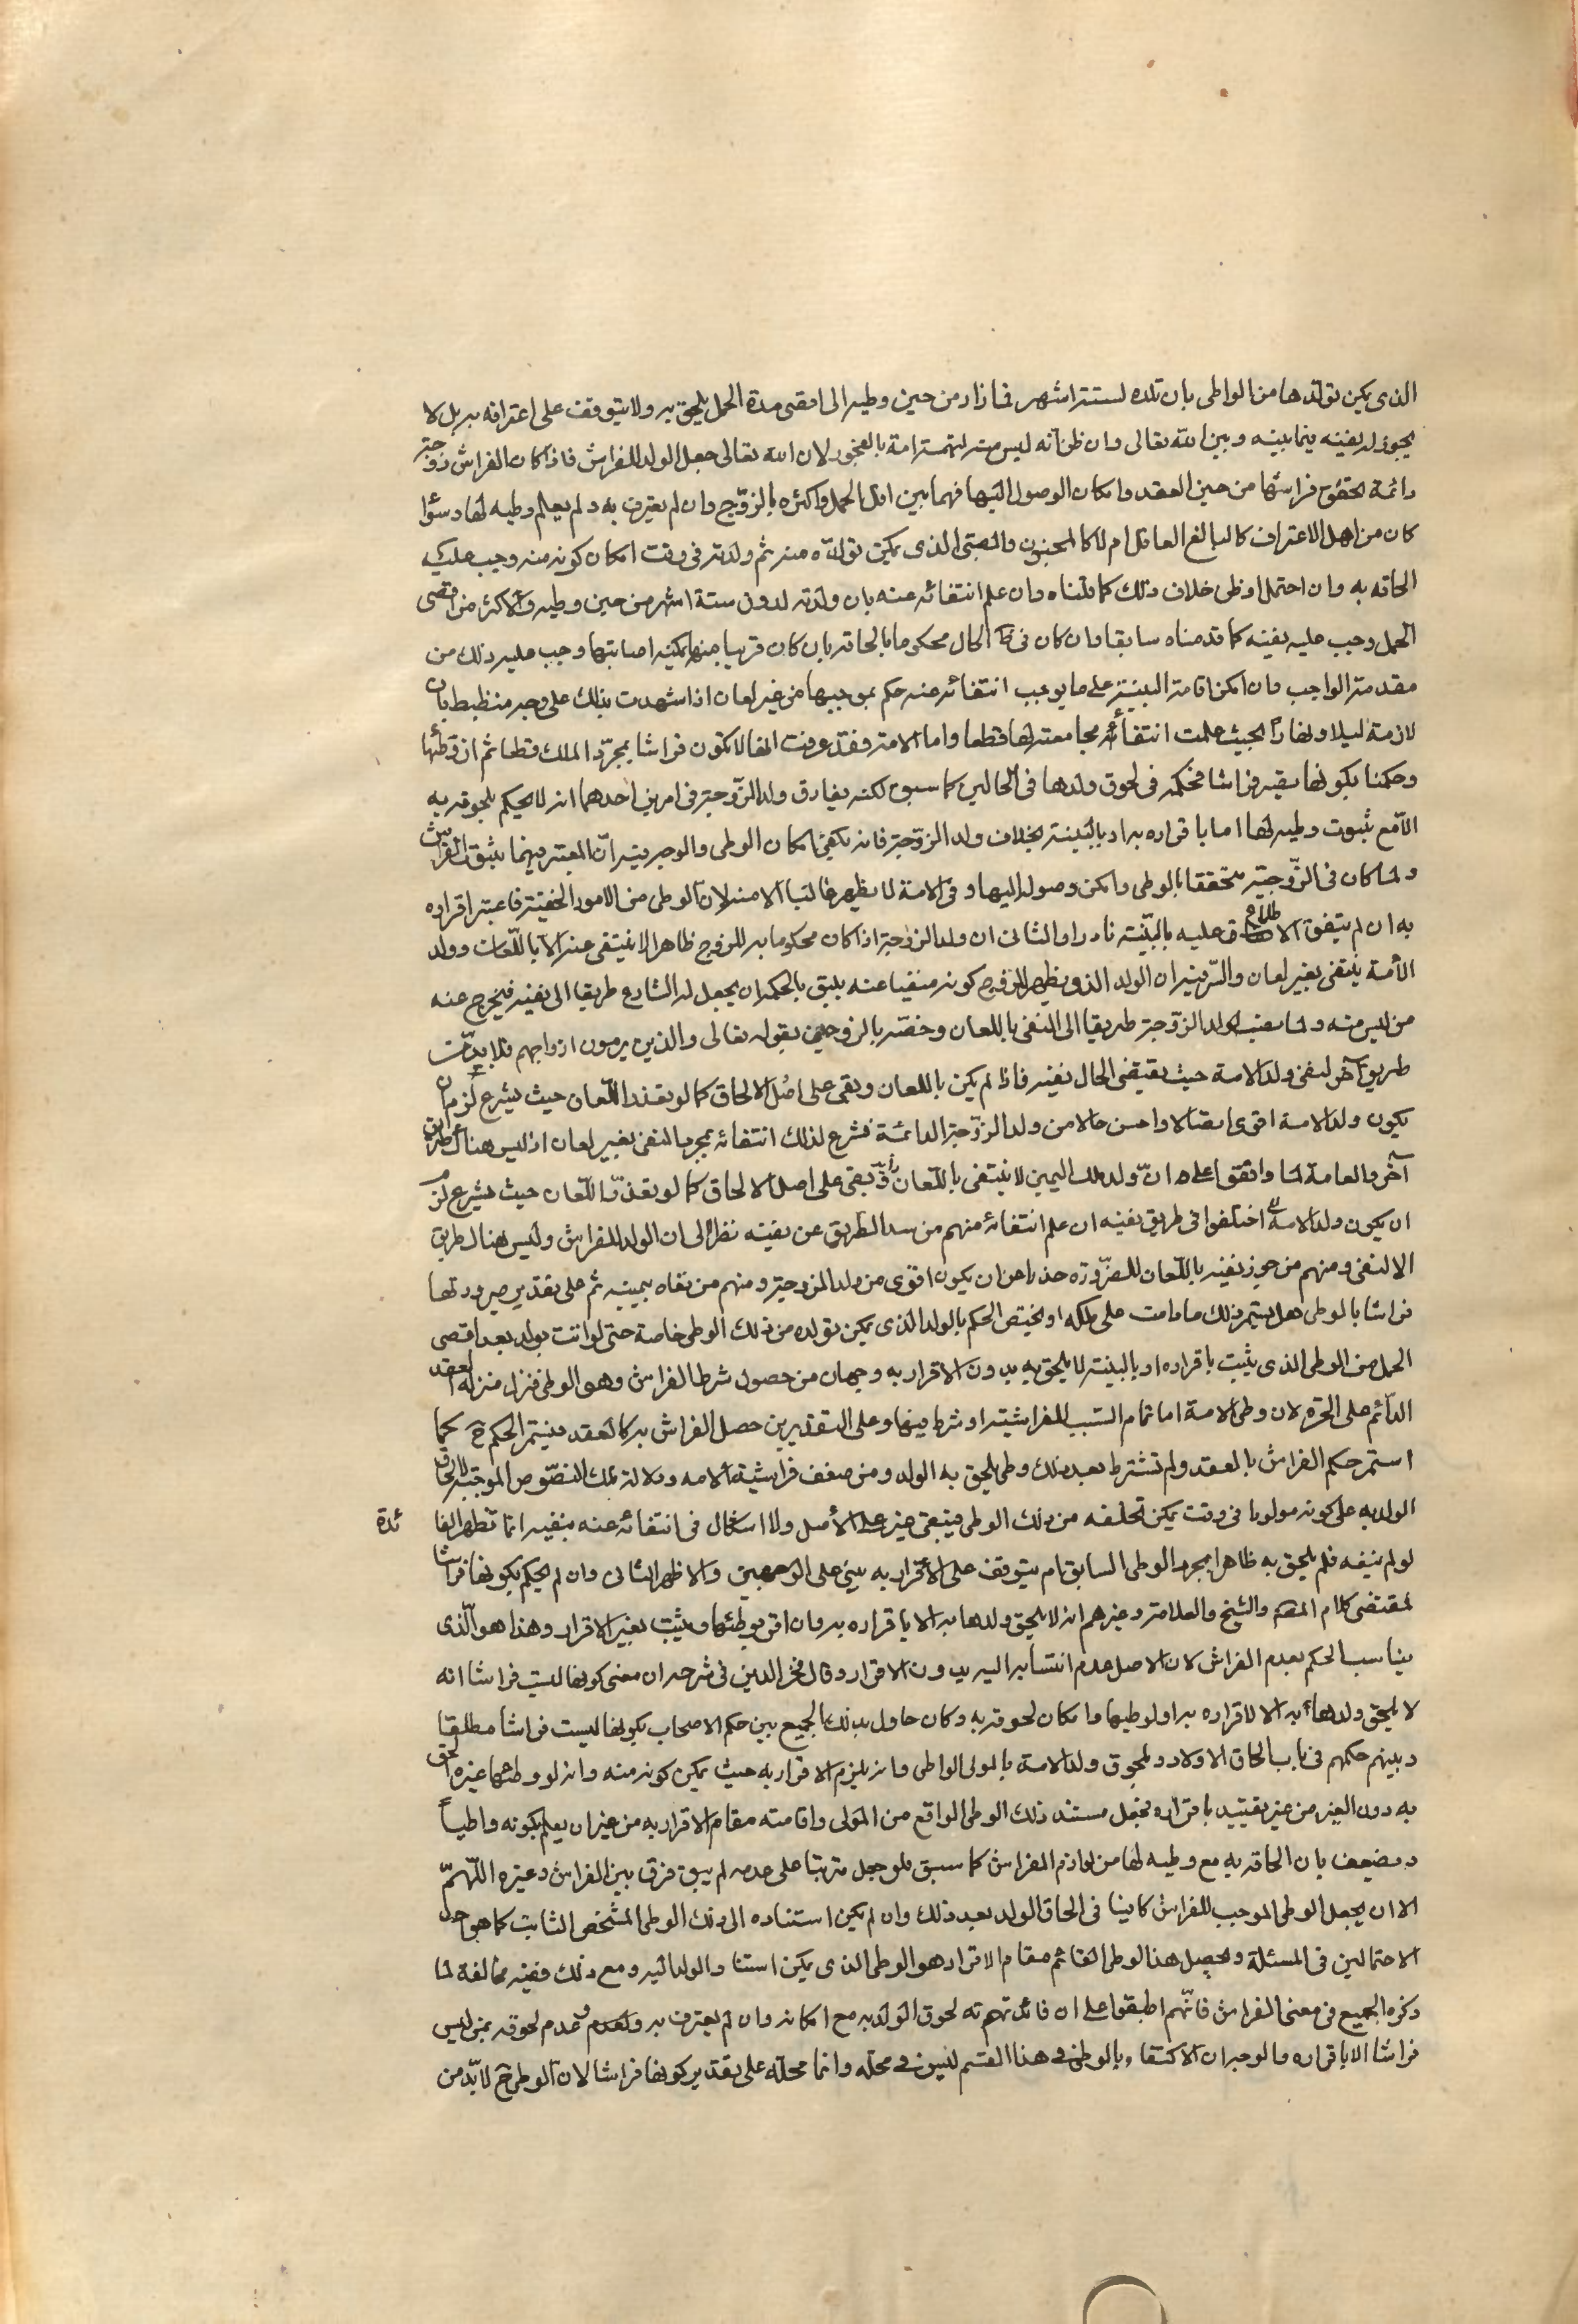 الذى يمكن تولدها من الواطى بان تلده لستة اشهر فمازاد من حين وطيه الى اقصى مدة الحمل يلحق به ولا يتوقف على اعترافه به بل لا
يجوز له نفيه فيما بينه وبين الله تعالى وان ظن انه ليس منه لتهمة امة بالفجور لان الله تعالى جعل الولد للفراش فاذا كان الفراش زوجة
دائمة تحقق فراشها من حين العقد وامكان الوصول اليها فهما بين اقل الحمل واكثره بالزوج وان لم يعترف به ولم يعلم وطيه لها وسؤا
كان من اهل الاعتراف كالبالغ العاقل ام لا كالمجنون والصبى الذى يمكن تولده منه ثم ولدته فى وقت امكان كونه منه وجب عليه
الحاقه به وان احتمل او ظن خلاف ذلك كما قلناه وان علم انتفائه عنه بان ولدته لدون ستة اشهر من حين وطيه والاكثر من اقصى
الحمل وجب عليه نفيه كما قدمناه سابقا وان كان فى ظ الحال محكوما بالحاقه بان كان قريبا منها يمكنه اصابتها وجب عليه ذلك من
مقدمة الواجب وان امكن اقامة البينة على ما يوجب انتفائه عنه حكم بموجبها من غير لعان اذا شهدت بذلك على وجه منظبط بان
لازمة ليلا ونهارا بحيث علمت انتفائه مجامعته لها قطعا واما الامة فقد عرفت انها لا تكون فراشا بمجرد الملك قطعا ثم ان وطئها
وحكمنا بكونها بقيه فراشا فحكمه فى لحوق ولدها فى الحالين كما سبق لكنه يفارق ولد الزوجة فى امرين احدهما انه لا يحكم بلحوقه به
الا مع ثبوت وطيه لها اما باقراره به او بالبينة بخلاف ولد الزوجة فانه يكفى امكان الوطى والوجه فيه ان المعتبر فيهما ثبوت الفراش
ولما كان فى الزوجة متحققا بالوطى وامكن وصوله اليها وفى الامة لا يظهر غالبا الا منه لان الوطى من الامور الخفية فاعتبر اقراره
به ان لم يتفق الاطلاع عليه بالبينة نادرا والثانى ان ولد الزوجة اذا كان محكوما به للزوج ظاهرا لا ينتفى عنه الا باللعان وولد
الأمة ينتفى بغير لعان والسر فيه ان الولد الذى يظهر للزوج كونه منفيا عنه يليق بالحكمة ان يجعل له الشارع طريقا الى نفيه فيخرج عنه
من ليس منه ولما نصب لولد الزوجة طريقا الى النفى باللعان وخصه بالزوجين بقوله تعالى والذين يرمون ازواجهم فلا بد من
طريق آخر لنفى ولد الامة حيث يقتضى الحال نفيه فاذا لم يكن باللعان وبقى على اصل الالحاق كما لو تعذر اللعان حيث يشرع لزم ان
يكون ولد الامة اقوى اتصالا واحسن حالا من ولد الزوجة الدائمة فشرع لذلك انتفائه بمجرد النفى بغير لعان اذ ليس هناك طريق
آخر والعامة لما واتفقوا على ان ولد ملك اليمين لا ينتفى باللعان وانه بقى على اصل الالحاق كما لو تعذر اللعان حيث يشرع لزم
ان يكون ولد الامة اختلفوا فى طريق نفيه ان علم انتفائه منهم من سد الطريق عن نفيه نظرا الى ان الولد للفراش وليس هناك طريق
الا لنفى ومنهم من جوز نفيه باللعان للضرورة حذرا من ان يكون اقوى من ولد المزوجة ومنهم من نفاه بيمينه ثم على تقدير صيرورتها
فراشا بالوطى هل يستمر ذلك ما دامت على ملكه او يختص الحكم بالولد الذى يمكن تولده من ذلك الوطى خاصة حتى لو اتت بولد بعد اقصى
الحمل من الوطى الذى يثبت باقراره او بالبينة لا يلحق به بدون الاقرار به وجهان من حصول شرط الفراش وهو الوطى فنزل منزلة العقد
الدائم على الحرة لان وطى الامة اما تمام السبب للفراشية او شرط فيها وعلى التقديرين حصل الفراش به كالعقد فيستمر الحكم ح كما
استمر حكم الفراش بالعقد ولم تشترط بعد ذلك وطى يلحق به الولد ومن ضعف فراشية الامه ودلالة تلك النصوص الموجبة لالحاق
الولد به على كونه مولودا فى وقت يمكن تخلفه من ذلك الوطى فيبقى غيره على الأصل ولا اشكال فى انتفائه عنه بنفيه انما تظهر الفا ئدة
لو لم ينفه فلم يلحق به ظاهرا بمجرد الوطى السابق ام يتوقف على الأقرار به يبنى على الوجهين والاظهر الثانى وان لم يحكم بكونها فراشا
لمقتضى كلام المصـ والشيخ والعلامة وغيرهم انه لا يلحق ولدها به الا باقراره به وان اقر بوطئها ويثبت بغير الاقرار وهذا هو الذى
يناسب الحكم بعدم الفراش لان الاصل عدم انتسابه اليه بدون الاقرار وقال فخر الدين فى شرحه ان معنى كونها ليست فراشا انه
لا يلحق ولدها به الا لاقراره به او لوطيها وامكان لحوقه به وكان حاول بذلك الجميع بين حكم الاصحاب بكونها ليست فراشا مطلقا
وبينهم حكمهم فى باب الحاق الاولاد وبلحوق ولد الامة بالمولى الواطى وانه يلزم الاقرار به حيث يمكن كونه منه وانه لو وطئها غيره الحق
به دون الغير من غير تقييد باقراره فجعل مستند ذلك الوطى الواقع من المولى واقامته مقام الاقرار به من غير ان يعلم بكونه واطيا
ويضعف بان الحاقه به مع وطيه لها من لوازم الفراش كما سبق فلو جعل مترتبا على عدمه لم يبق فرق بين الفراش وغيره اللهم
الا ان يجعل الوطى الموجب للفراش كافيا فى الحاق الولد بعد ذلك وان لم يكن استناده الى ذلك الوطى المشخص الثابت كما هو احد
الاحتمالين فى المسئلة ويحصل هذا الوطى القائم مقام الاقرار هو الوطى الذى يمكن استنا د الولد اليه ومع ذلك ففيه مخالفة لما
ذكره الجميع فى معنى الفراش فانهم اطبقوا على ان فائدته لحوق الولد به مع امكانه وان لم يعترف به وعدم لحوقه بمن ليس
فراشا الا باقراره والوجه ان الاكتفاء بالوطى فى هذا القسم ليس فى محله وانما محله على تقدير كونها فراشا لان الوطى ح لا بد من